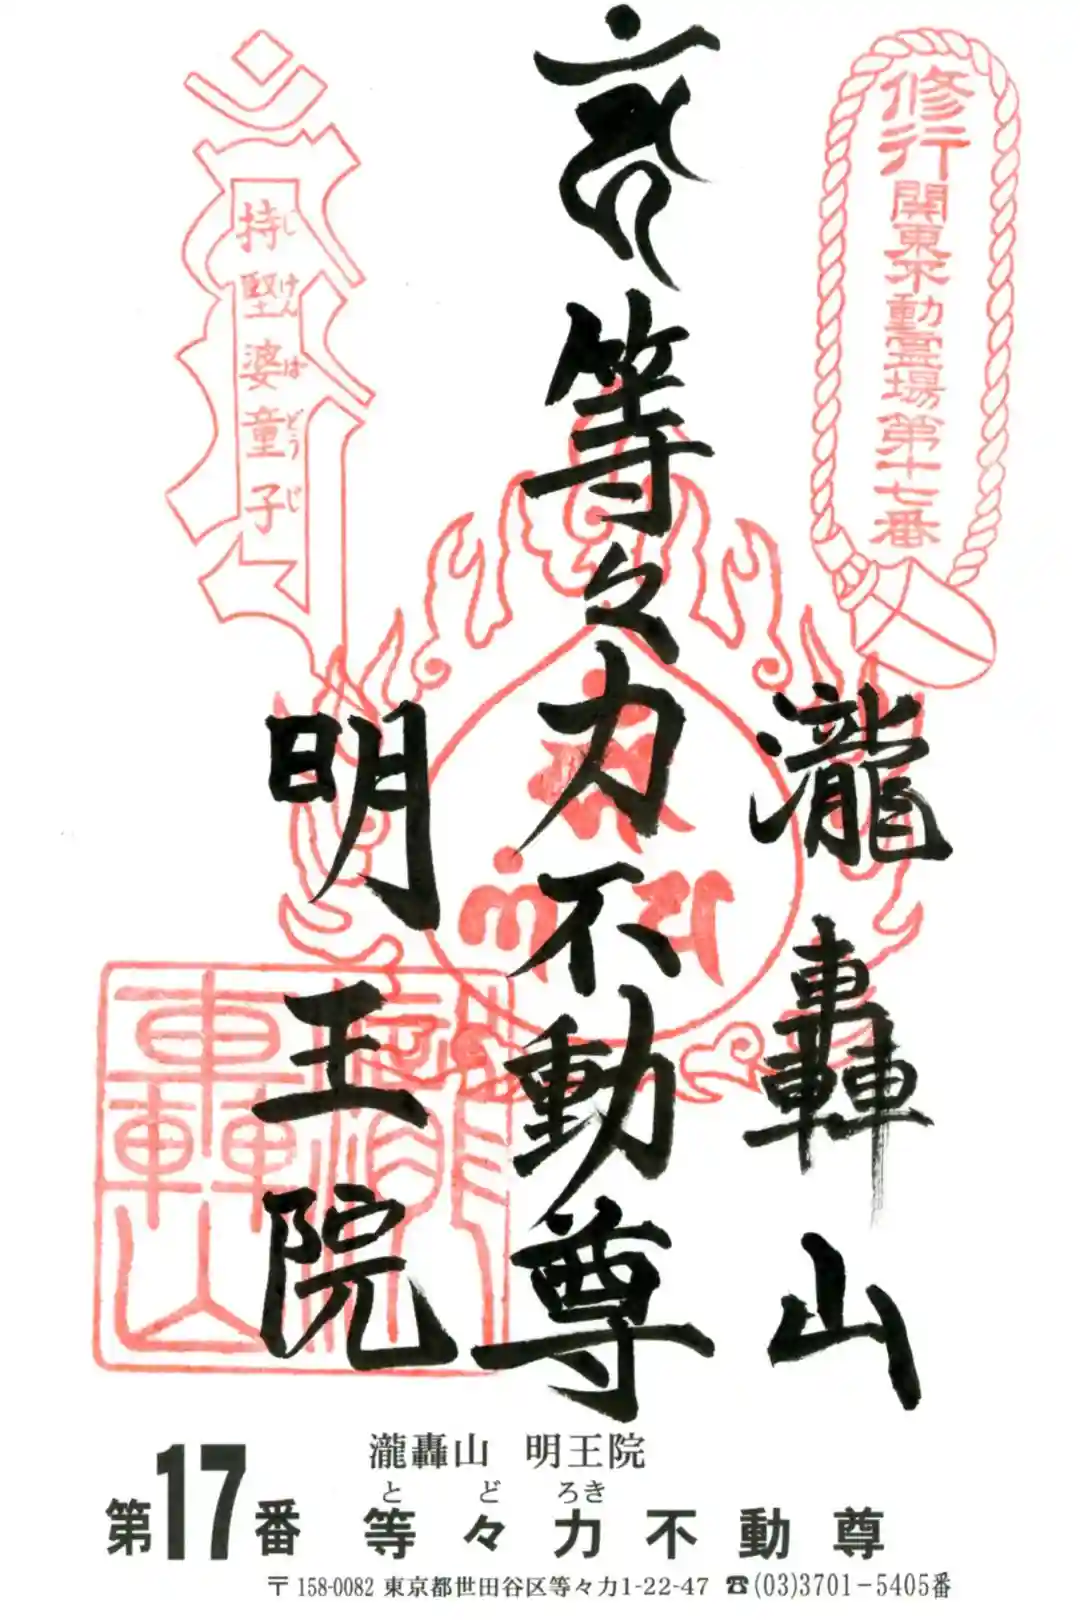 修行
関東不動霊場第十七番
等々力不動尊
持堅婆童子
じけんばどうじ
瀧轟山
明王院
瀧轟山
瀧轟山 明王院
とどろき
第17番 等々力不動尊
〒158-0082 東京都世田谷区等々力1-22-47 ☎(03)3701-5405番